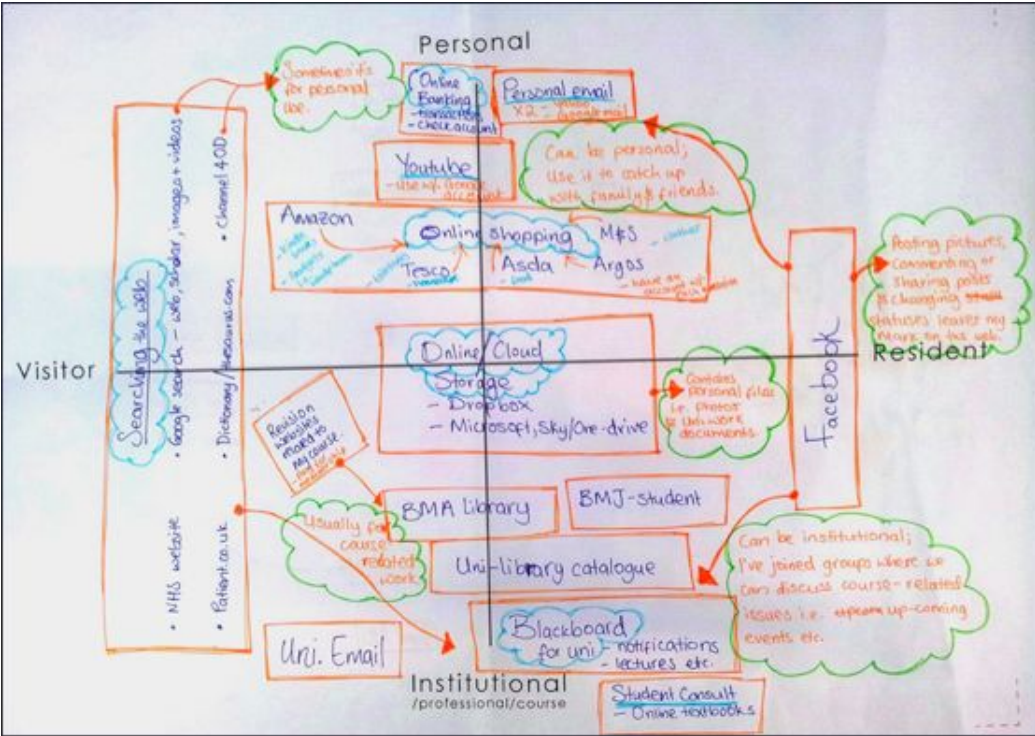 Personal
Sometimes it's
for personal
use.
Online
Banking
- transactions
- check account
Personal email
x2 -
googlemail
Youtube
- Use w/. Google
account
Can be personal;
Use it to catch up
with family & friends.
Amazon
Online shopping
M&S
- clothes
Tesco
Asda
- food
Argos
- have an
account w/
each
Posting pictures,
commenting or
sharing posts
& changing
statuses leaves my
mark on the web.
Visitor
Resident
Searching the web
• Google search - web, scholar, images + videos
• Channel 4OD
• Dictionary/thesaurus.com
• NHS website
• Patient.co.uk
Online/Cloud
Storage
- Dropbox
- Microsoft, Sky/One-drive
Contains
personal files
i.e. photos
& Uni work
documents.
Facebook
Revision
websites
related to
my course.
BMA library
BMJ-student
Usually for
course-
related
work
Uni-library catalogue
Can be institutional;
I've joined groups where we
can discuss course-related
issues i.e. up-coming
events etc.
Uni. Email
Blackboard
for uni - notifications
- lectures etc.
Institutional
/professional/course
Student Consult
- Online textbooks